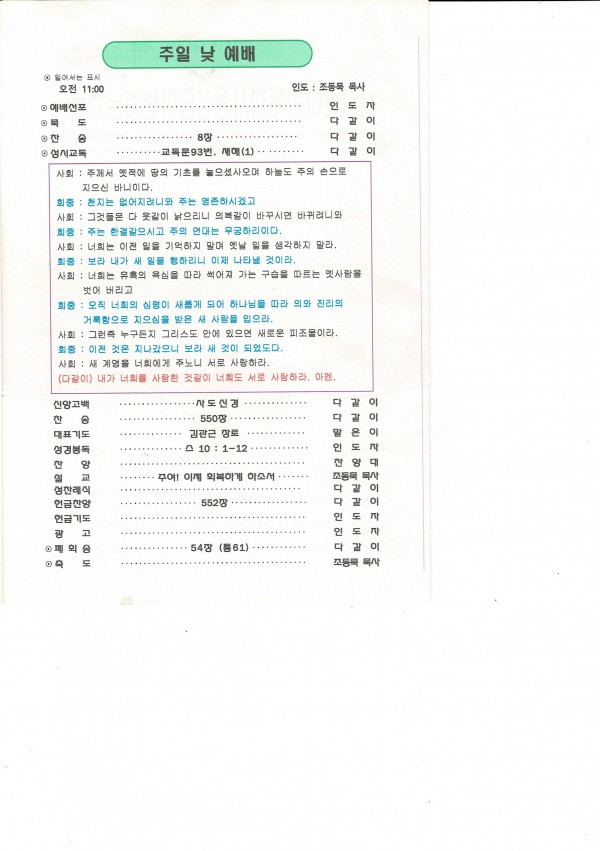 주일 낮 예배
⊙ 일어서는 표시
오전 11:00 인도 : 조동묵 목사
⊙ 예배선포 ········ 인 도 자
⊙ 묵 도 ········ 다 같 이
⊙ 찬 송 ········ 8장 ········ 다 같 이
⊙ 성시교독 ········ 교독문93번. 새해(1) ········ 다 같 이
사회 : 주께서 옛적에 땅의 기초를 놓으셨사오며 하늘도 주의 손으로
지으신 바니이다.
회중 : 천지는 없어지려니와 주는 영존하시겠고
사회 : 그것들은 다 옷같이 낡으리니 의복같이 바꾸시면 바뀌려니와
회중 : 주는 한결같으시고 주의 연대는 무궁하리이다.
사회 : 너희는 이전 일을 기억하지 말며 옛날 일을 생각하지 말라.
회중 : 보라 내가 새 일을 행하리니 이제 나타낼 것이라.
사회 : 너희는 유혹의 욕심을 따라 썩어져 가는 구습을 따르는 옛사람을
벗어 버리고
회중 : 오직 너희의 심령이 새롭게 되어 하나님을 따라 의와 진리의
거룩함으로 지으심을 받은 새 사람을 입으라.
사회 : 그런즉 누구든지 그리스도 안에 있으면 새로운 피조물이라.
회중 : 이전 것은 지나갔으니 보라 새 것이 되었도다.
사회 : 새 계명을 너희에게 주노니 서로 사랑하라.
(다같이) 내가 너희를 사랑한 것같이 너희도 서로 사랑하라. 아멘.
신앙고백 ········ 사도신경 ········ 다 같 이
찬 송 ········ 550장 ········ 다 같 이
대표기도 ········ 김관근 장로 ········ 맡 은 이
성경봉독 ········ 스 10 : 1-12 ········ 인 도 자
찬 양 ········ 찬 양 대
설 교 ········ 주여! 이제 회복하게 하소서 ········ 조동묵 목사
성찬례식 ········ 다 같 이
헌금찬양 ········ 552장 ········ 다 같 이
헌금기도 ········ 인 도 자
광 고 ········ 인 도 자
⊙ 폐 회 송 ········ 54장 (통61) ········ 다 같 이
⊙ 축 도 ········ 조동묵 목사